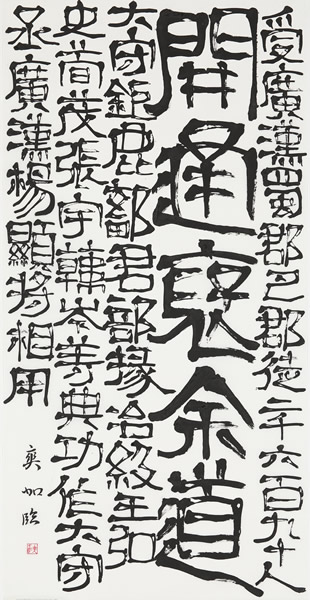 受廣漢蜀郡巴郡徒二千六百九十人
開通褒余道
大守鉅鹿鄐君部掾治級王弘
史荀茂張宇韓岑等典功作大守
丞廣漢楊顯將相用
如臨